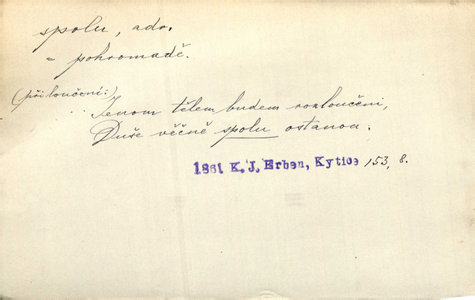 spolu, adv.
= pohromadě.
(při loučení:)
Jenom tělem budem rozloučeni,
Duše věčně spolu ostanou.
1861 K. J. Erben, Kytice 153, 8.